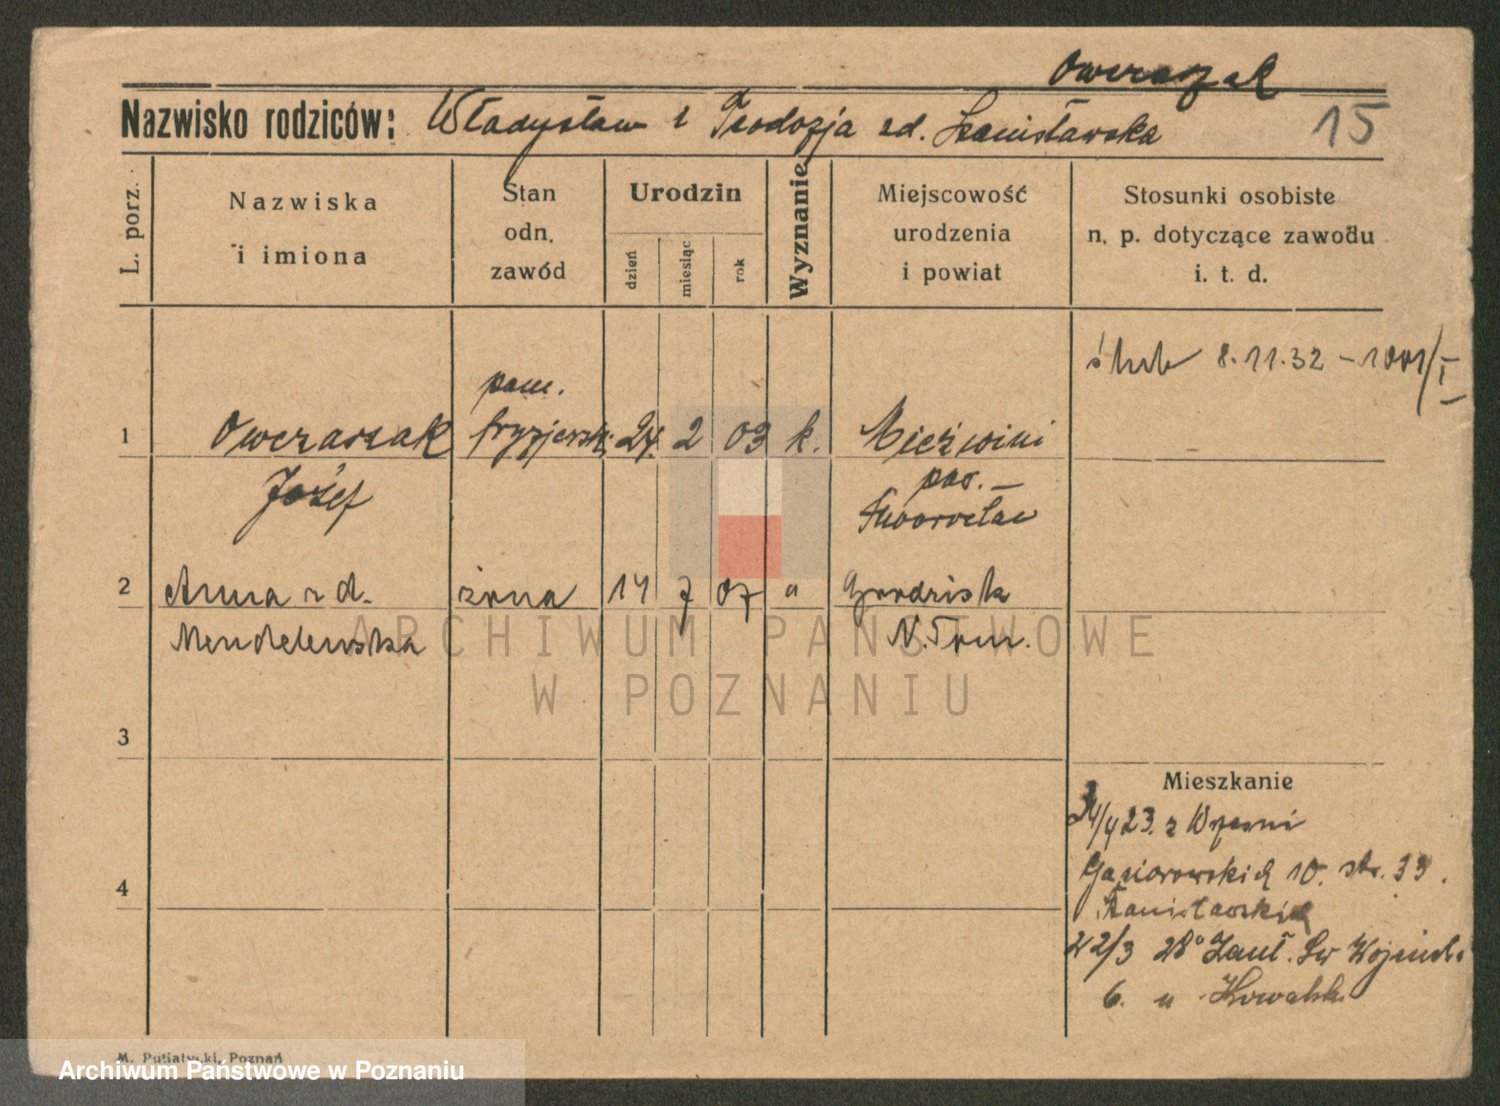 Owczarzak
Nazwisko rodziców: Władysław i Teodozja zd. Stanisławska
15
L. porz.
Nazwiska
i imiona
Stan
odn.
zawód
Urodzin
dzień
miesiąc
rok
Wyznanie
Miejscowość
urodzenia
i powiat
Stosunki osobiste
n. p. dotyczące zawodu
i. t. d.
ślub 8.11.32 – 1001/I
1 Owczarzak pom. fryzjersk. 24 2 03 k. Mierzwini
Józef pow. –
Inowrocław
2 Anna zd. żona 14 7 07 " Grodzisk
Mendelewska N. Tom.
3
4
Mieszkanie
24/4 23. z Wrześni
Gąsiorowskich 10. str. 33.
Stanisławskich
22/3 28 Zauł. Św Wojciech
6. u Kowalsk.
M. Putiatycki, Poznań
ARCHIWUM PAŃSTWOWE
W POZNANIU
Archiwum Państwowe w Poznaniu